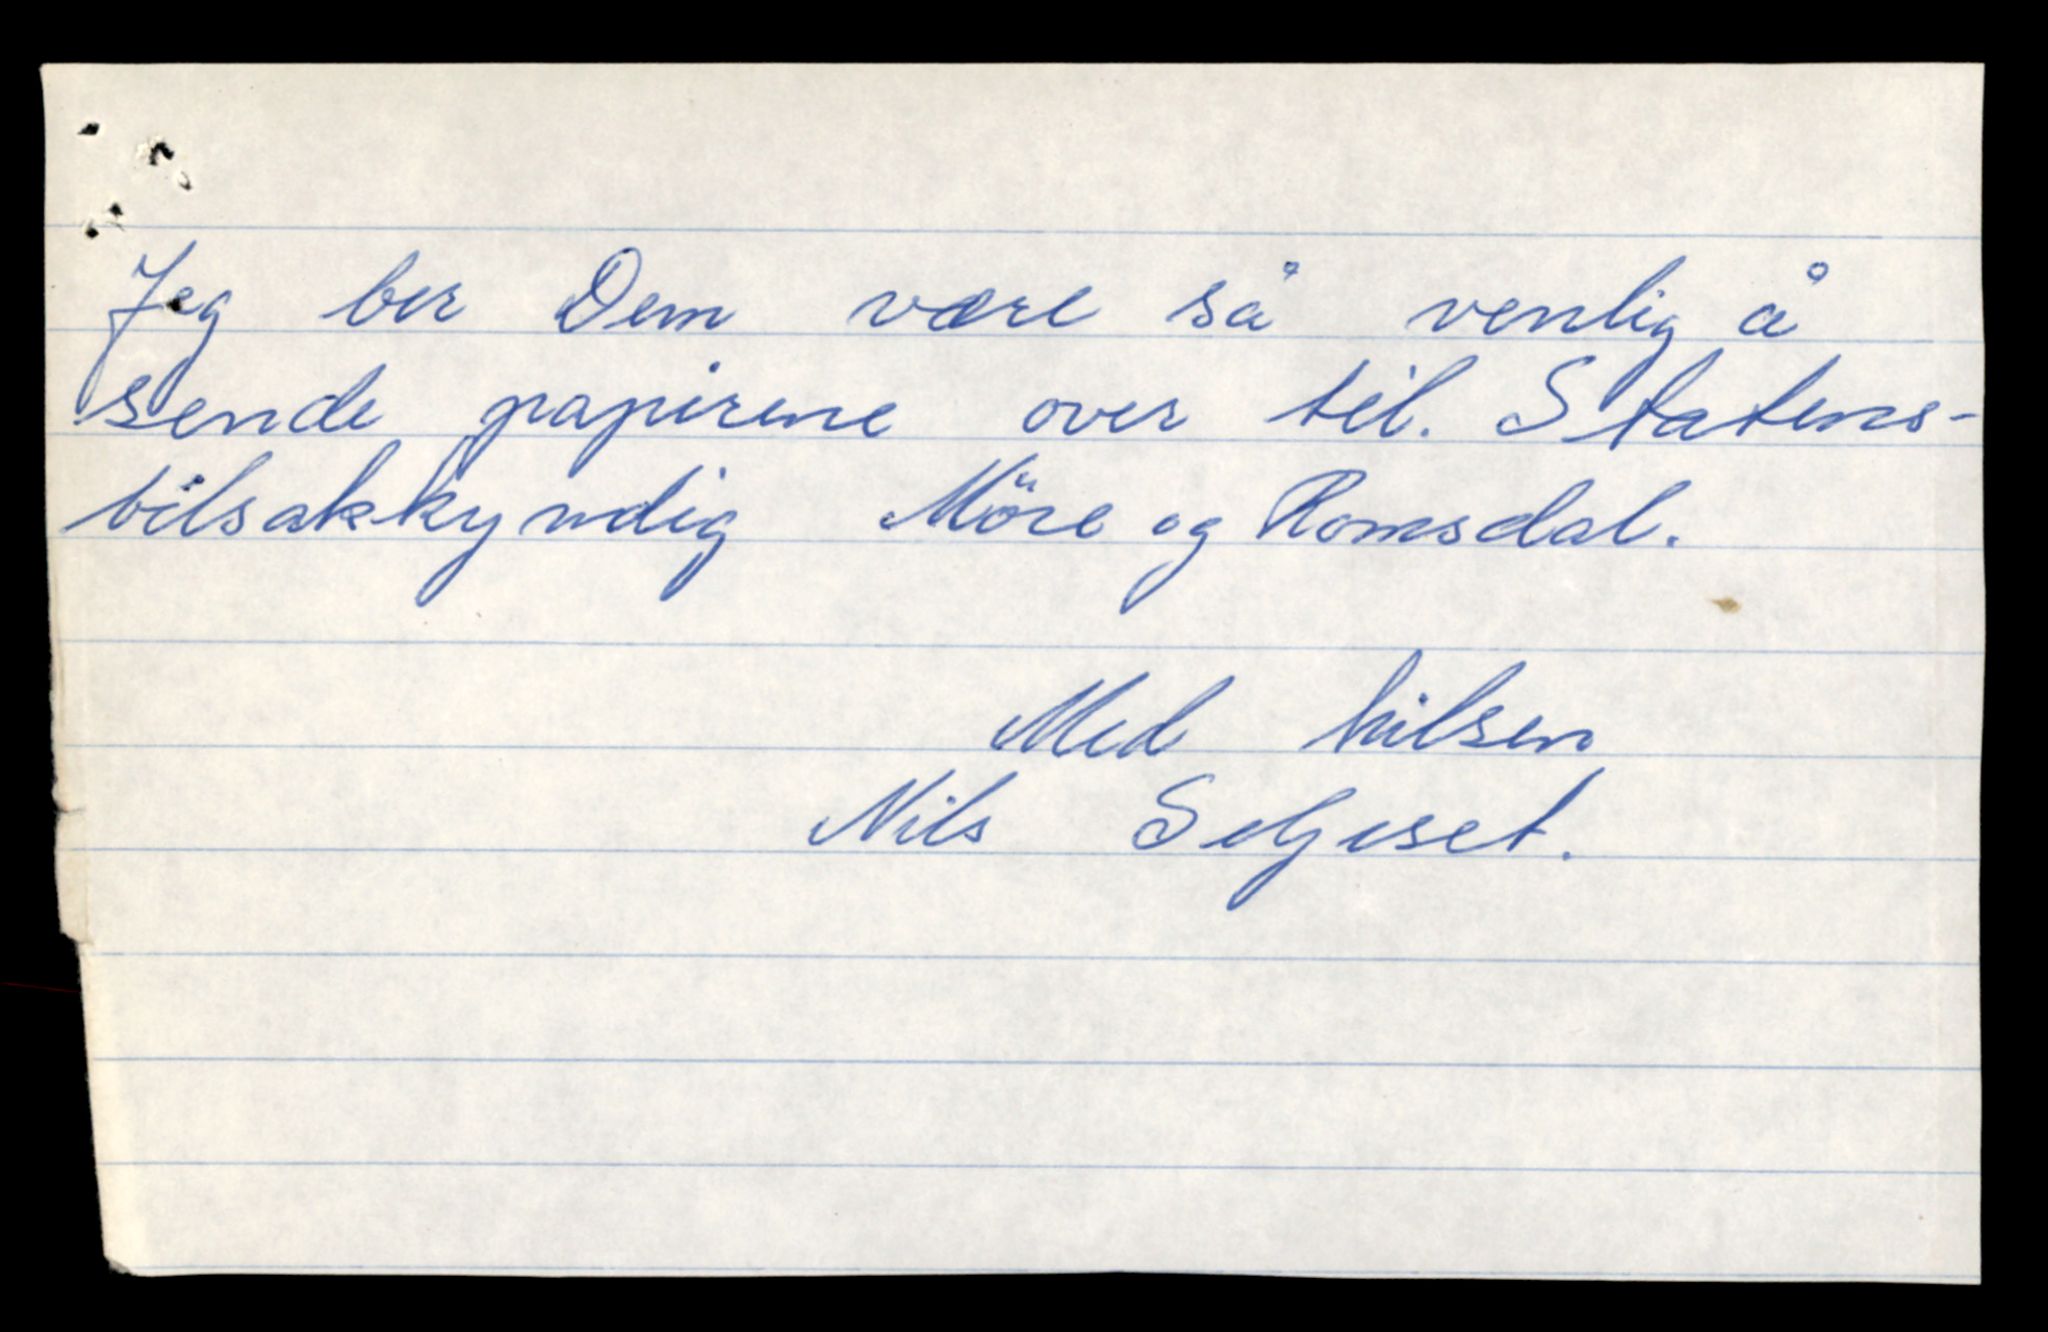 Jeg ber Dem være så venlig å
sende papirene over til. Statens-
bilsakkyndig Möre og Romsdal.
Med hilsen
Nils Seljeset.